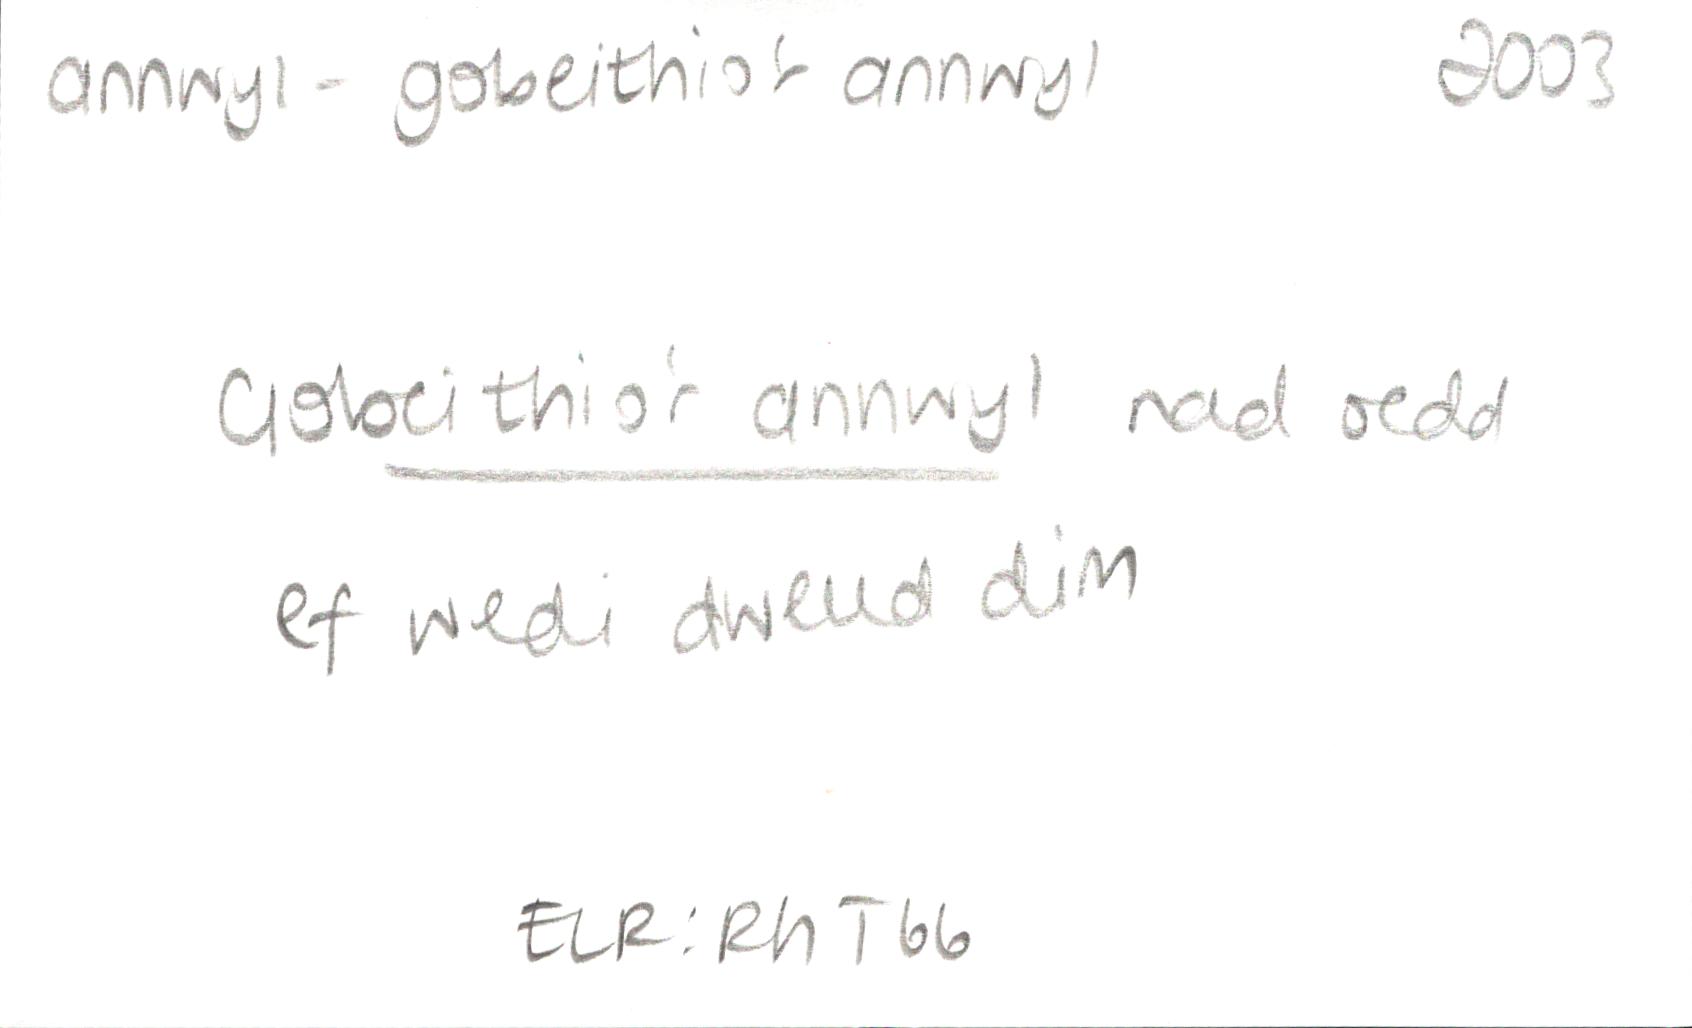 annwyl - gobeithio'r annwyl 2003
Gobeithio'r annwyl nad oedd
ef wedi dweud dim
ELR: RhT 66